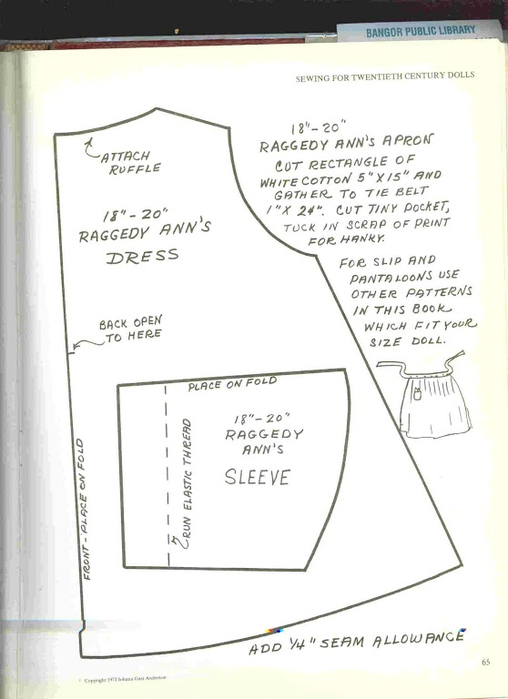 BANGOR PUBLIC LIBRARY
SEWING FOR TWENTIETH CENTURY DOLLS
18"-20"
RAGGEDY ANN'S APRON
CUT RECTANGLE OF
WHITE COTTON 5"X15" AND
GATHER TO TIE BELT
1"X 24". CUT TINY POCKET,
TUCK IN SCRAP OF PRINT
FOR HANKY.
FOR SLIP AND
PANTALOONS USE
OTHER PATTERNS
IN THIS BOOK
WHICH FIT YOUR
SIZE DOLL.
ATTACH
RUFFLE
18"-20"
RAGGEDY ANN'S
DRESS
BACK OPEN
TO HERE
PLACE ON FOLD
18"-20"
RAGGEDY
ANN'S
SLEEVE
RUN ELASTIC THREAD
FRONT - PLACE ON FOLD
ADD 1/4" SEAM ALLOWANCE
65
Copyright 1972 Johana Gast Anderton